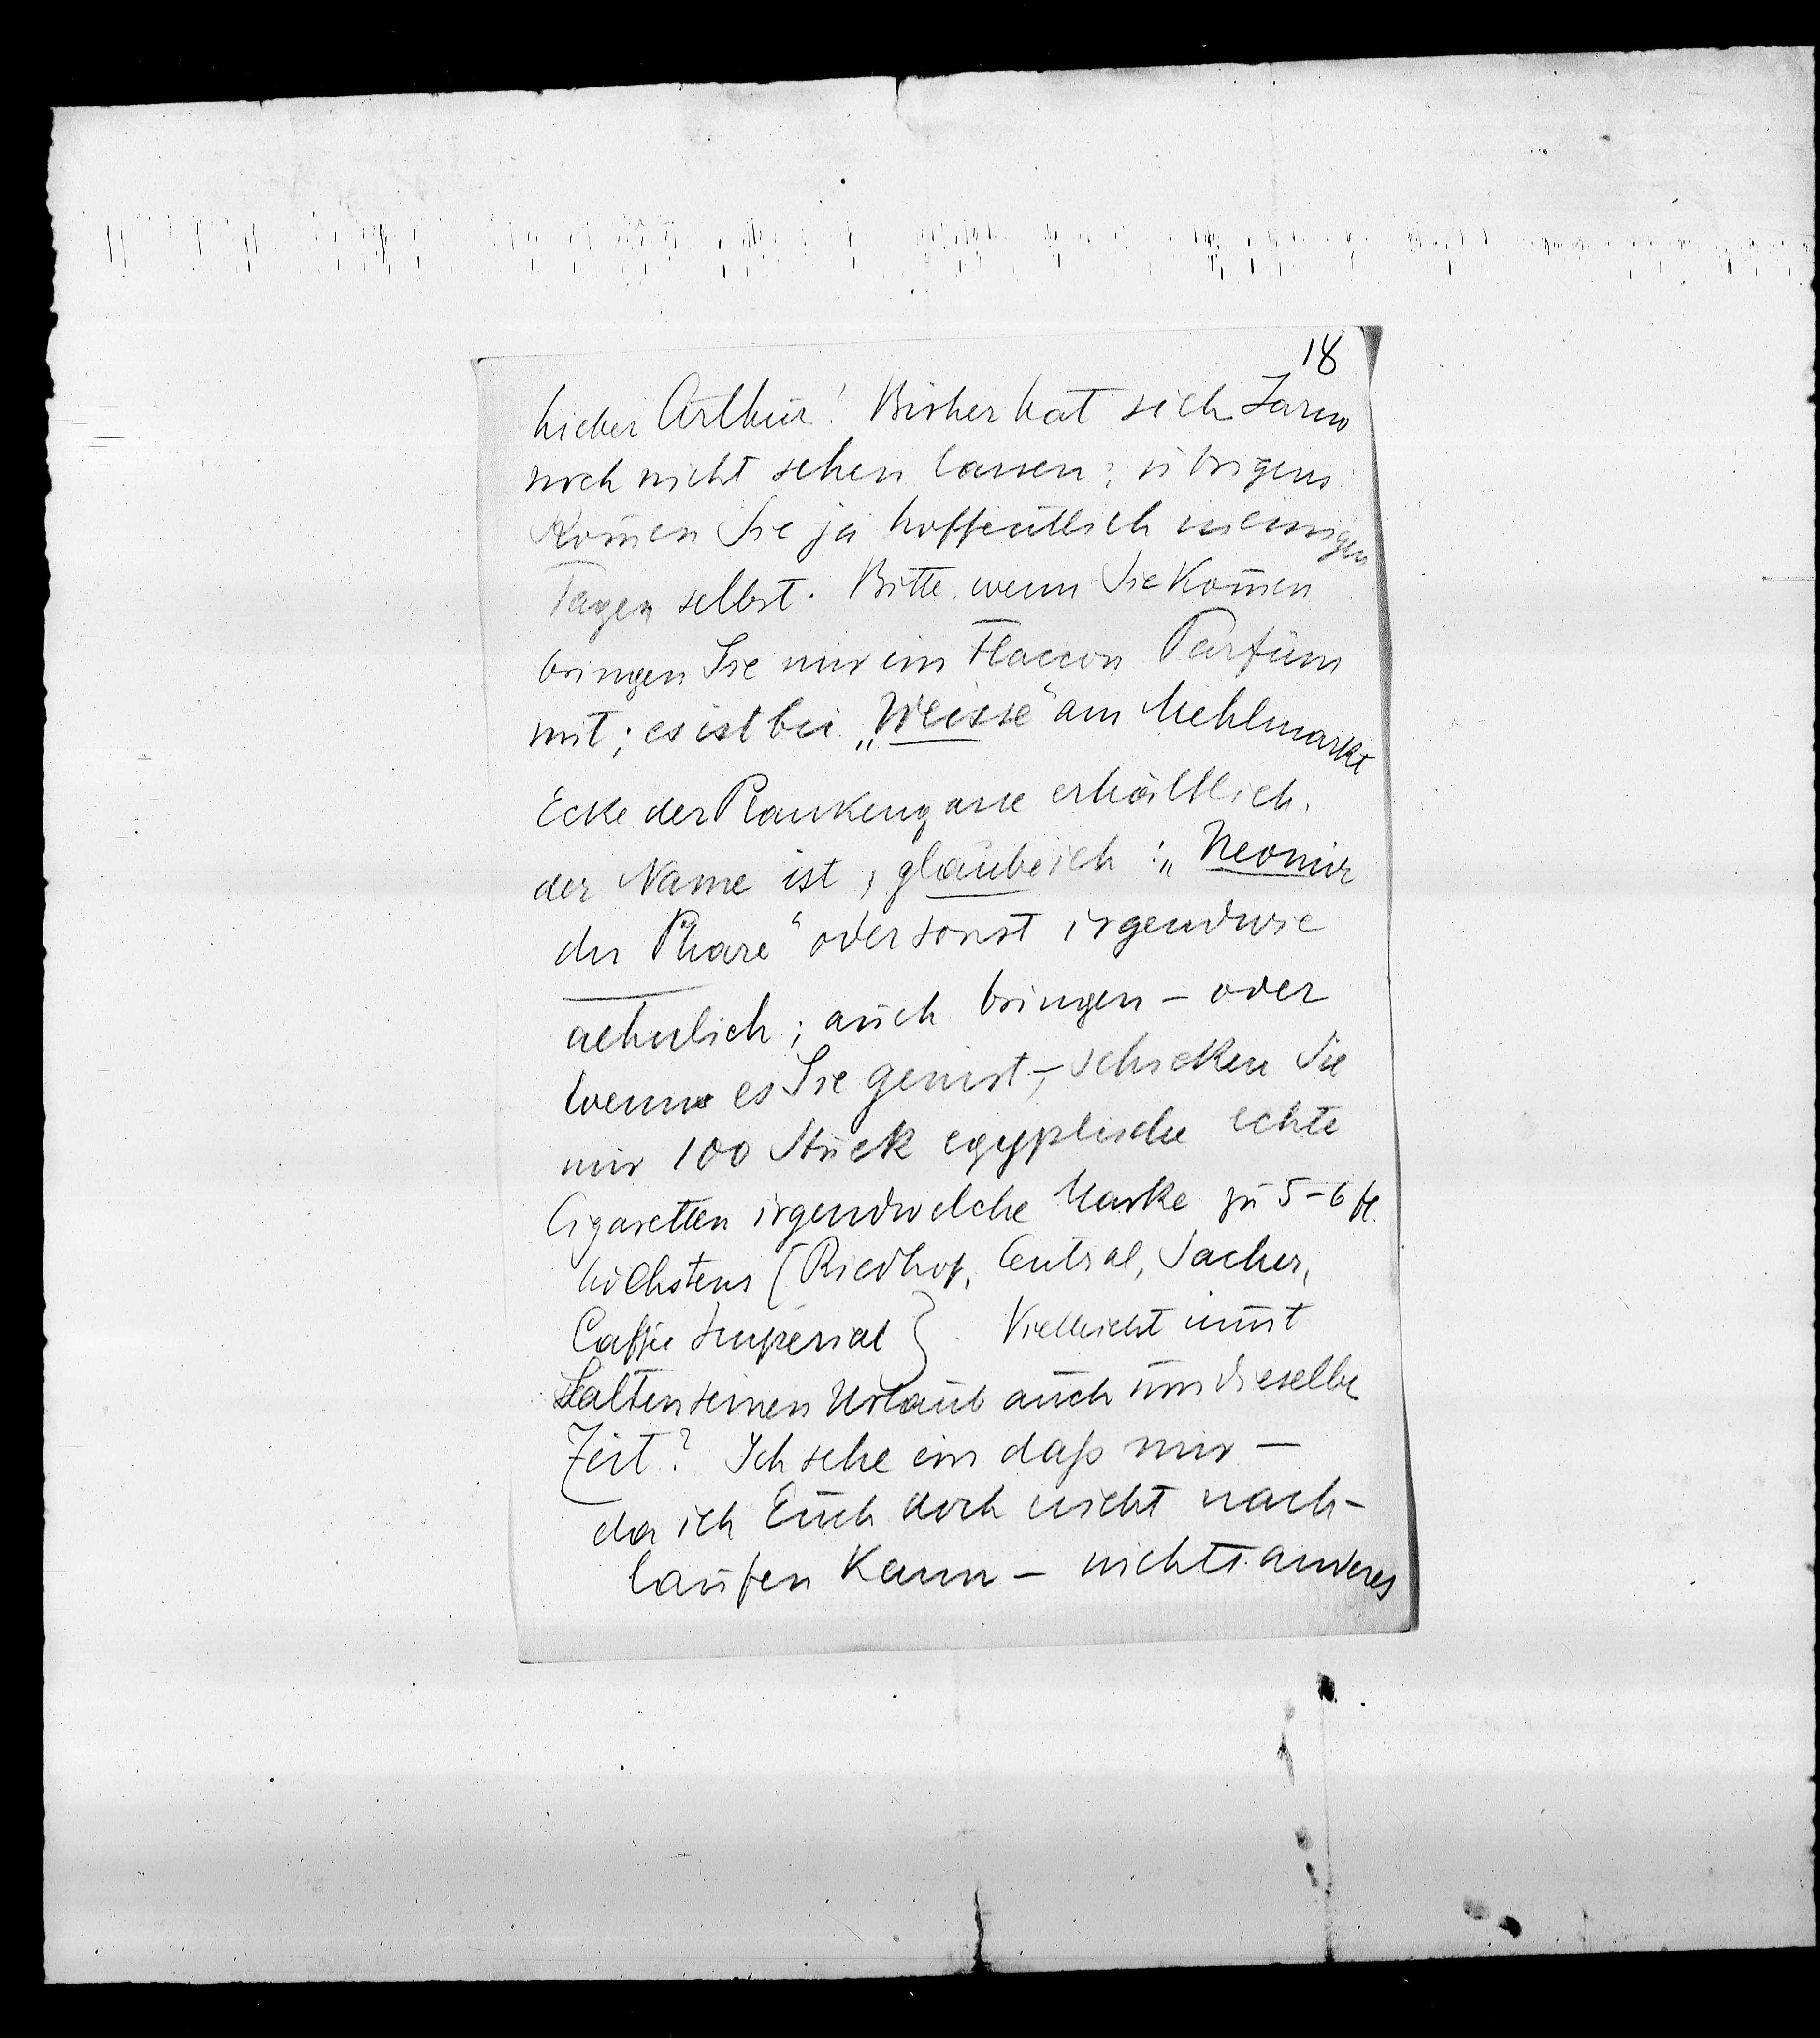 18
Lieber Arthur! Bisher hat sich Jarno
noch nicht sehen lassen; übrigens
kom̄en Sie ja hoffentlich in einigen
Tagen selbst. Bitte wenn Sie kom̄en
bringen Sie mir ein Flaccon Parfüm
mit; es ist bei „Weisse“ am Mehlmarkt
Ecke der Plankengasse erhältlich.
der Name ist, glaube ich: „Neomir
du Phare“ oder sonst irgendwie
aehnlich; auch bringen – oder
wenn es Sie genirt –, schicken Sie
mir 100 Stück egyptische echte
Cigaretten irgendwelche Marke zu 5–6 fl.
höchstens (Riedhof, Central, Sacher,
Caffée Imperial). Vielleicht nim̄t
Salten seinen Urlaub auch um dieselbe
Zeit? Ich sehe ein daſs mir –
da ich Euch doch nicht nach-
laufen kann – nichts anderes